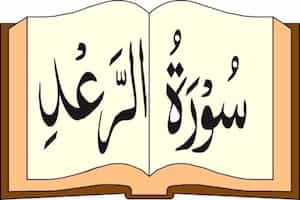 سُوْرَةُ الرَّعْدِ